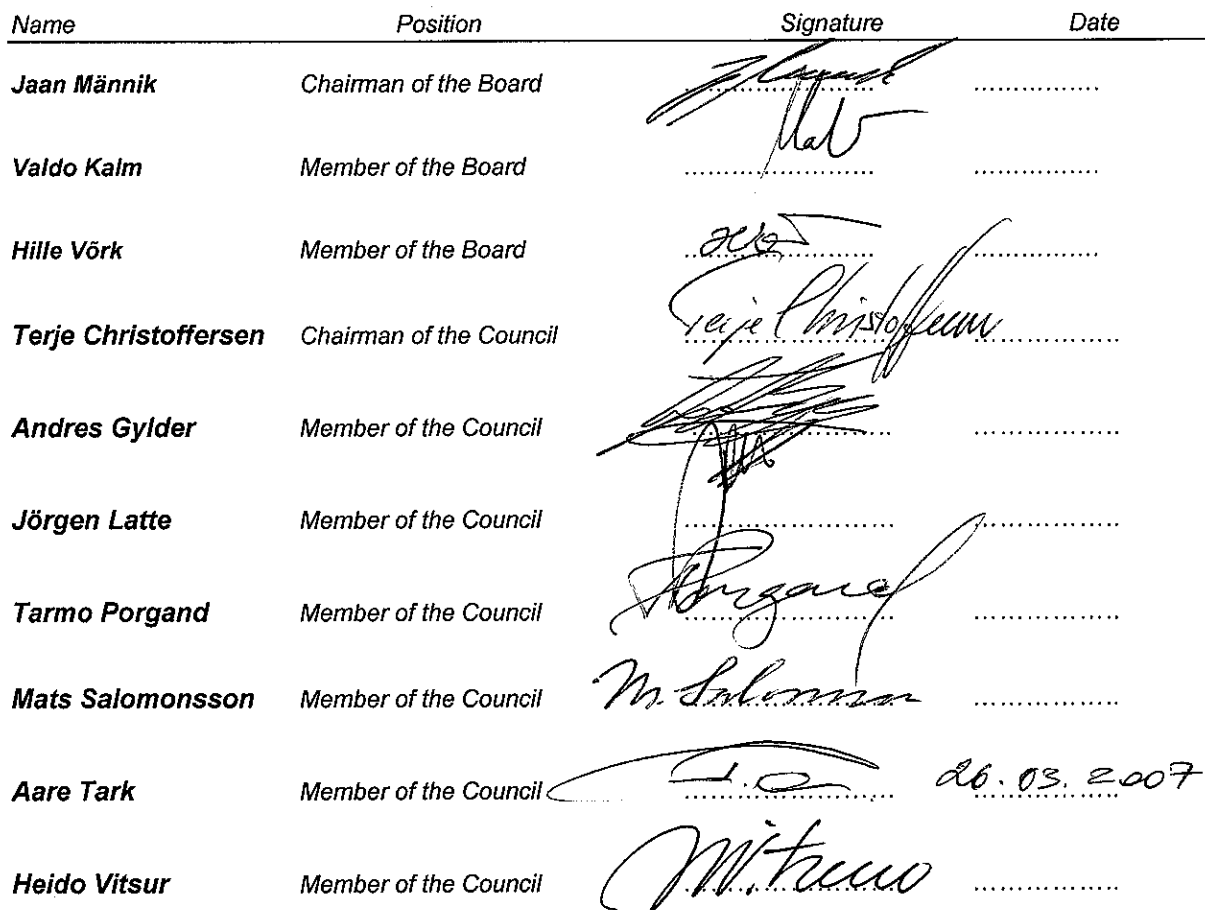 Name Position Signature Date
Jaan Männik Chairman of the Board ............... ...............
Valdo Kalm Member of the Board ............... ...............
Hille Võrk Member of the Board ............... ...............
Terje Christoffersen Chairman of the Council Terje Christoffersen ...............
Andres Gylder Member of the Council ............... ...............
Jörgen Latte Member of the Council ............... ...............
Tarmo Porgand Member of the Council Porgand ...............
Mats Salomonsson Member of the Council M. Salomonsson ...............
Aare Tark Member of the Council ............... 26.03.2007
Heido Vitsur Member of the Council ............... ...............